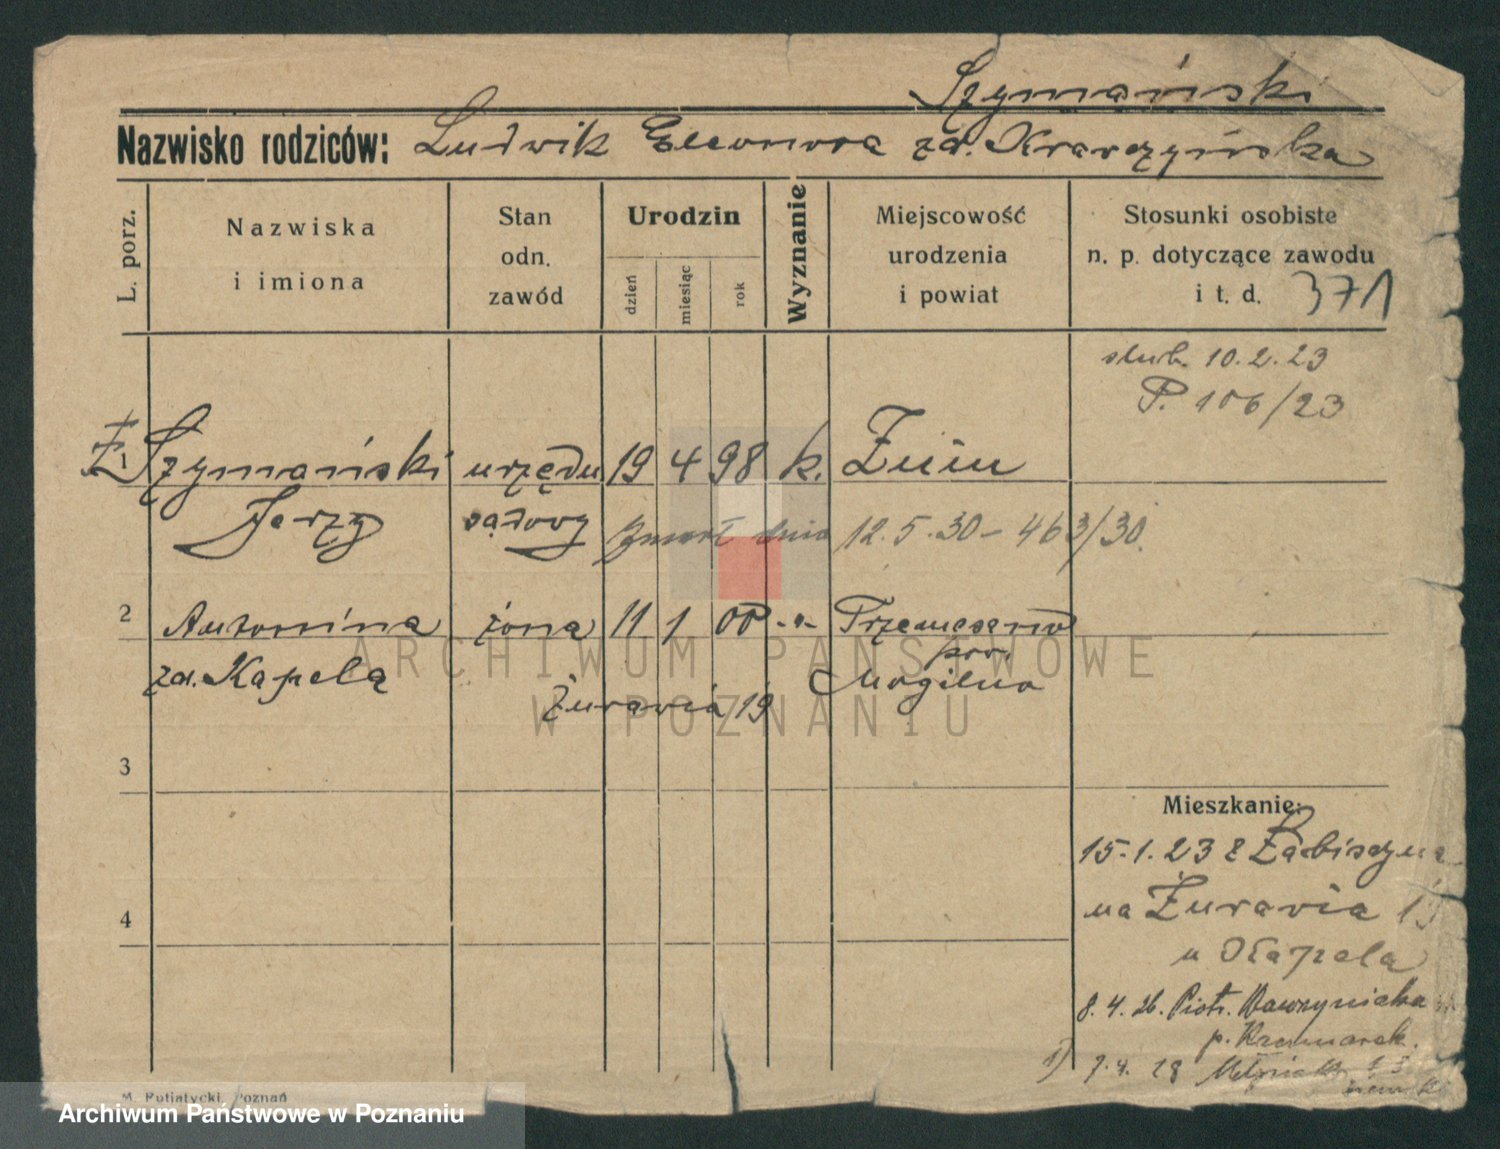 Szymański
Nazwisko rodziców: Ludwik Eleonora zd. Krawczyńska
L. porz.
Nazwiska
i imiona
Stan
odn.
zawód
Urodzin
dzień
miesiąc
rok
Wyznanie
Miejscowość
urodzenia
i powiat
Stosunki osobiste
n. p. dotyczące zawodu
i t. d. 371
ślub. 10.2.23
P. 106/23
1 Szymański urzędn 19 4 98 k. Żnin
Jerzy sądowy zmarł dnia 12.5.30 - 463/30.
2 Antonina żona 11 1 00 -"- Trzemeszno
pow.
zd. Kapela Mogilno
Żurawia 19
3
Mieszkanie:
15.1.23 z Łabiszyna
na Żurawia 19
u Kapela
4
8.4.26. Piotr. Wawrzyniaka
p. Kaczmarek.
1) 7.4.28
M. Putiatycki, Poznań
ARCHIWUM PAŃSTWOWE
W POZNANIU
Archiwum Państwowe w Poznaniu